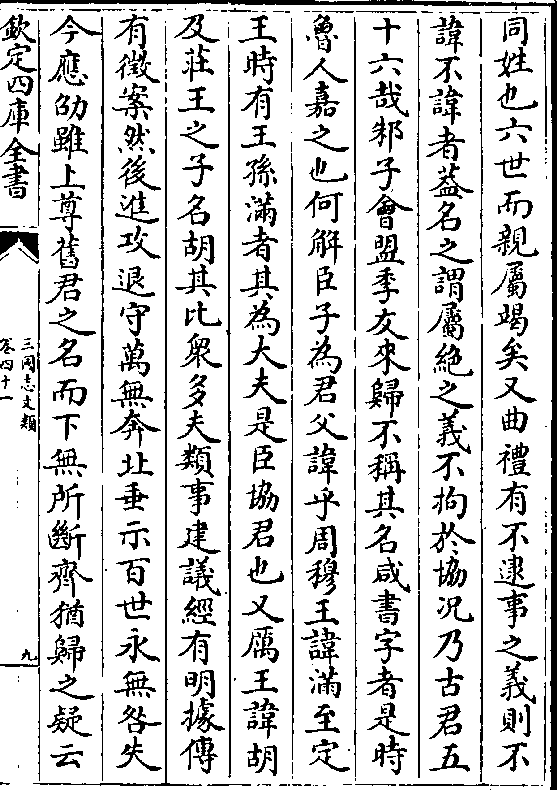 同姓也六世而親屬竭矣又曲禮有不逮事之義則不
諱不諱者葢名之謂屬絶之義不拘於協况乃古君五
十六哉邾子㑹盟季友來歸不稱其名咸書字者是時
魯人嘉之也何解臣子為君父諱乎周穆王諱滿至定
王時有王孫滿者其為大夫是臣協君也又厲王諱胡
及莊王之子名胡其比衆多夫類事建議經有明據傳
有徵案然後進攻退守萬無奔北垂示百世永無咎失
今應劭雖上尊舊君之名而下無所斷齊猶歸之疑云
欽定四庫全書
三國志文類
卷四十一
九